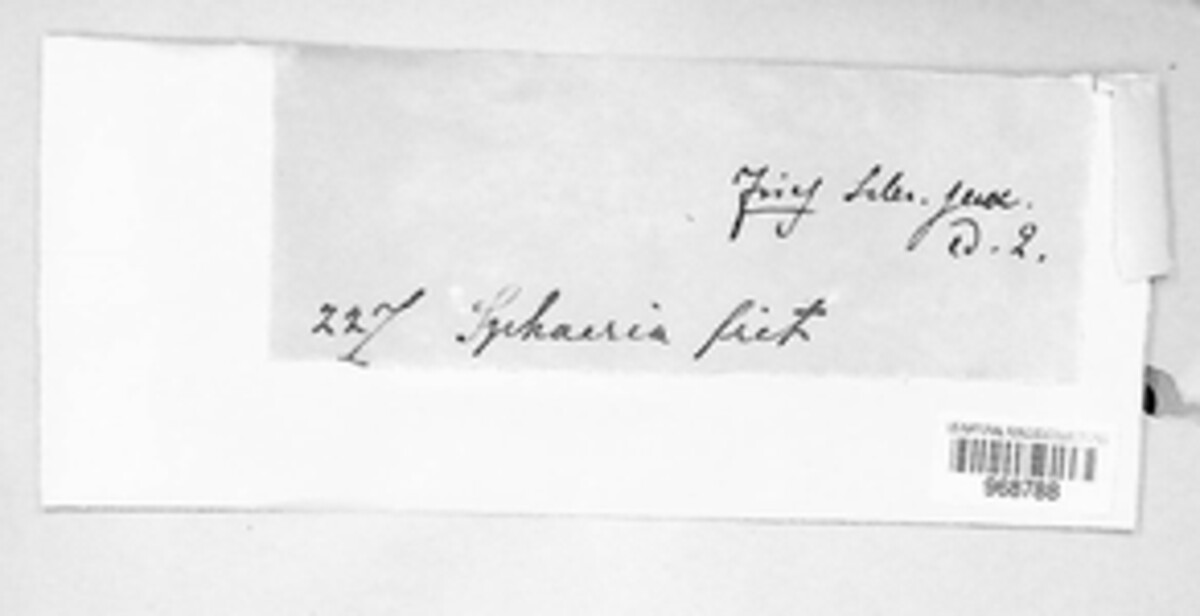 Fries Scler. suec.
ed. 2.
227 Sphaeria
968788